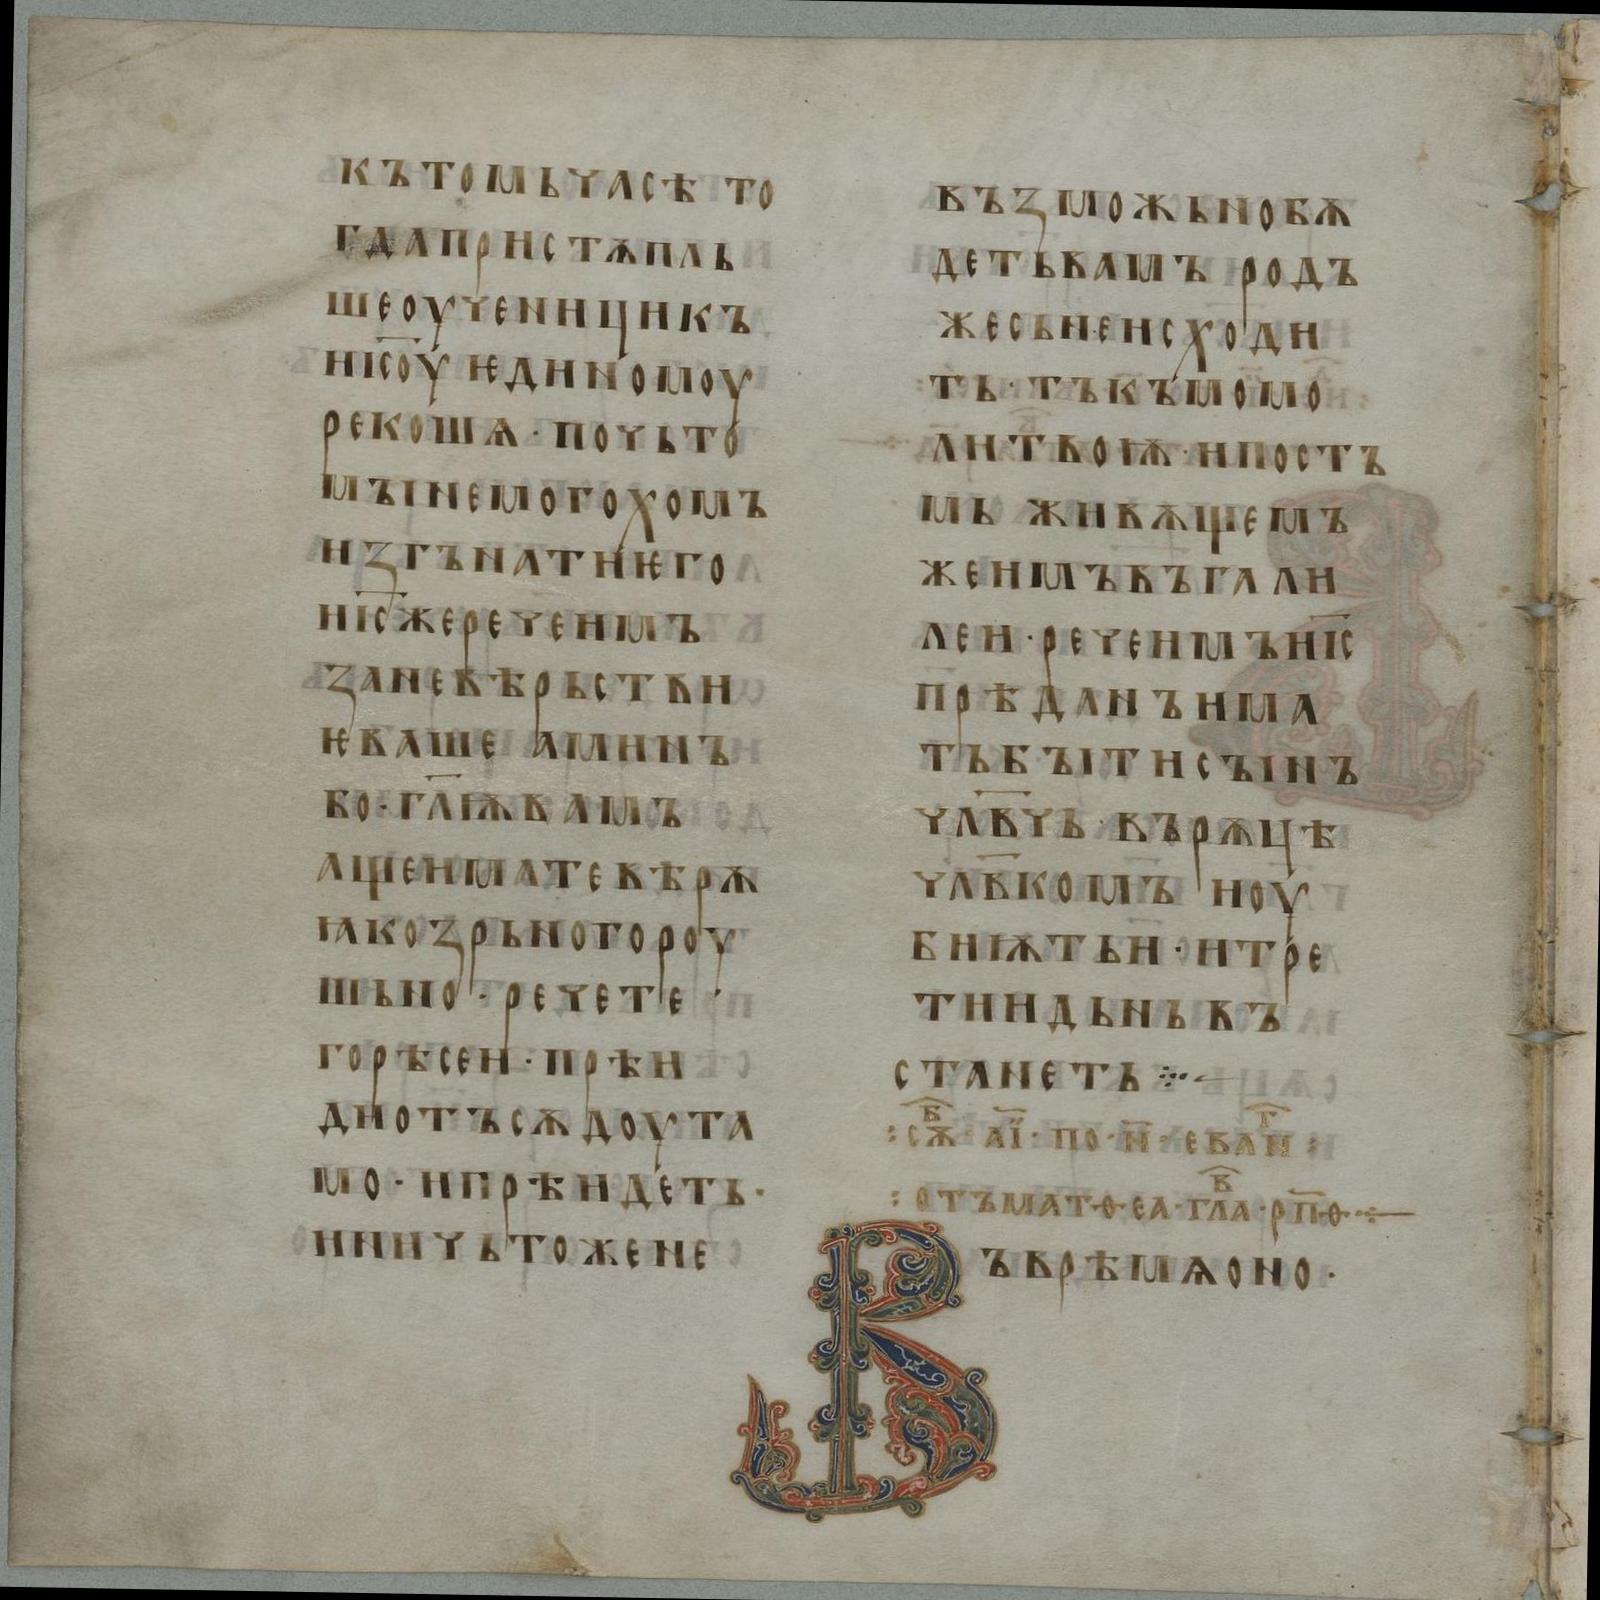 къ томь чꙗсѣ то
гда пристѫпль
ше оученици къ
ні҃соу ѥдиномоу
рекошѧ · по чьто
мꙑ не могохомъ
изгънати ѥго
и і҃с же рече имъ
за невѣрьстви
ѥ ваше аминъ
бо · гл҃ѭ вамъ
аще имате вѣрѫ
ꙗко зрьно гороу
шьно · речете ·
горѣ сеи · прѣи
ди отъ сѫдоу та
мо · и прѣидеть ·
и ничьтоже не
възможьно бѫ
деть вамъ родъ
же сь не исходи
ть · тъкъмо мо
литвоѭ · и постъ
мь живѫщемъ
же имъ въ гали
леи · рече имъ і҃с
прѣданъ има
тъ бꙑти сꙑнъ
чл҃вчь · въ рѫцѣ
чл҃вкомъ и оу
биѭтьи · и тре
тии дьнь въ
станеть ⁘
: сѫв · аі҃ · по · н҃ · еваㄥт :
: отъ мат · ѳ · еа · глав · рп҃ѳ ·
Въ врѣмѧ оно ·